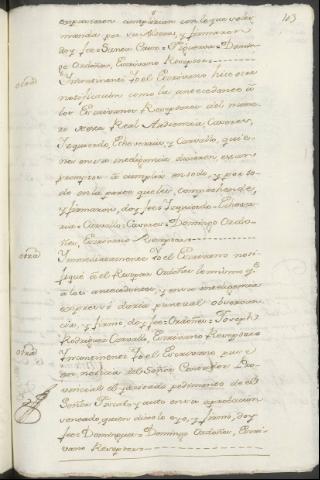 103
expusieron cumplirian con lo que se les
manda por su Alteza, y firmaron
doy fee=
Ordoñez, Escrivano Receptor
otra
Incontinenti Yo el Escrivano hice otra
notificacion como la antecedente á
los Escrivanos Receptores del nume-
ro de esta Real Audiencia, Caceres,
Izquierdo, Echeverria, y Carvallo, quie-
nes en su inteligencia dixeron estan
promptos á cumplir en todo, y por to-
do en la parte que les comprehende,
y firmaron, doy fee= Izquierdo= Echever-
ria= Carvallo= Caceres= Domingo Ordo-
ñez, Escrivano Receptor
otra
Inmediatamente Yo el Escrivano noti-
fiqué á el Receptor Ordoñez lo mismo qe
á los antecedentes, y en su inteligencia
expresó daria puntual observan-
cia, y firmó, doy fee= Ordoñez= Joseph
Rodriguez Carvallo, Escrivano Receptor
otra
Incontinenti Yo el Escrivano puse
por noticia del Señor Contador Pro-
vincial el párrafo pedimento de el
Señor Fiscal, y auto en su aprobacion
enterado quien dixo lo oye, y firmó, doy
fee= Dominguez= Domingo Ordoñez, Escri-
vano Receptor